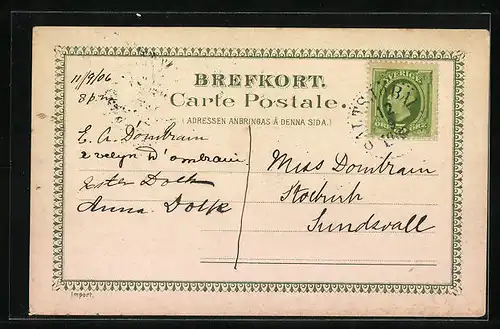 11/9/06
8 p.m.
BREFKORT.
Carte Postale.
(ADRESSEN ANBRINGAS Å DENNA SIDA.)
SVERIGE
E. A. Dombrain
Evelyn D'ombrain
Ester Dolk
Anna Dolk
Miss Dombrain
Sundsvall
Import.